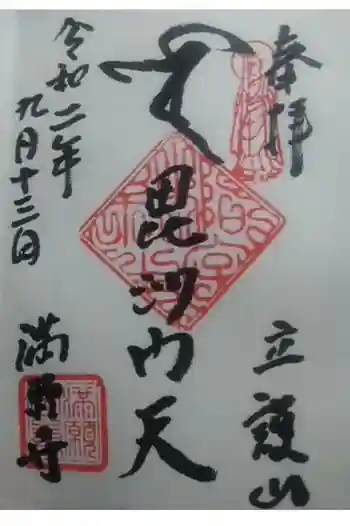 奉拝
立護山
毘沙門天
令和二年
九月十三日
満願寺
満願